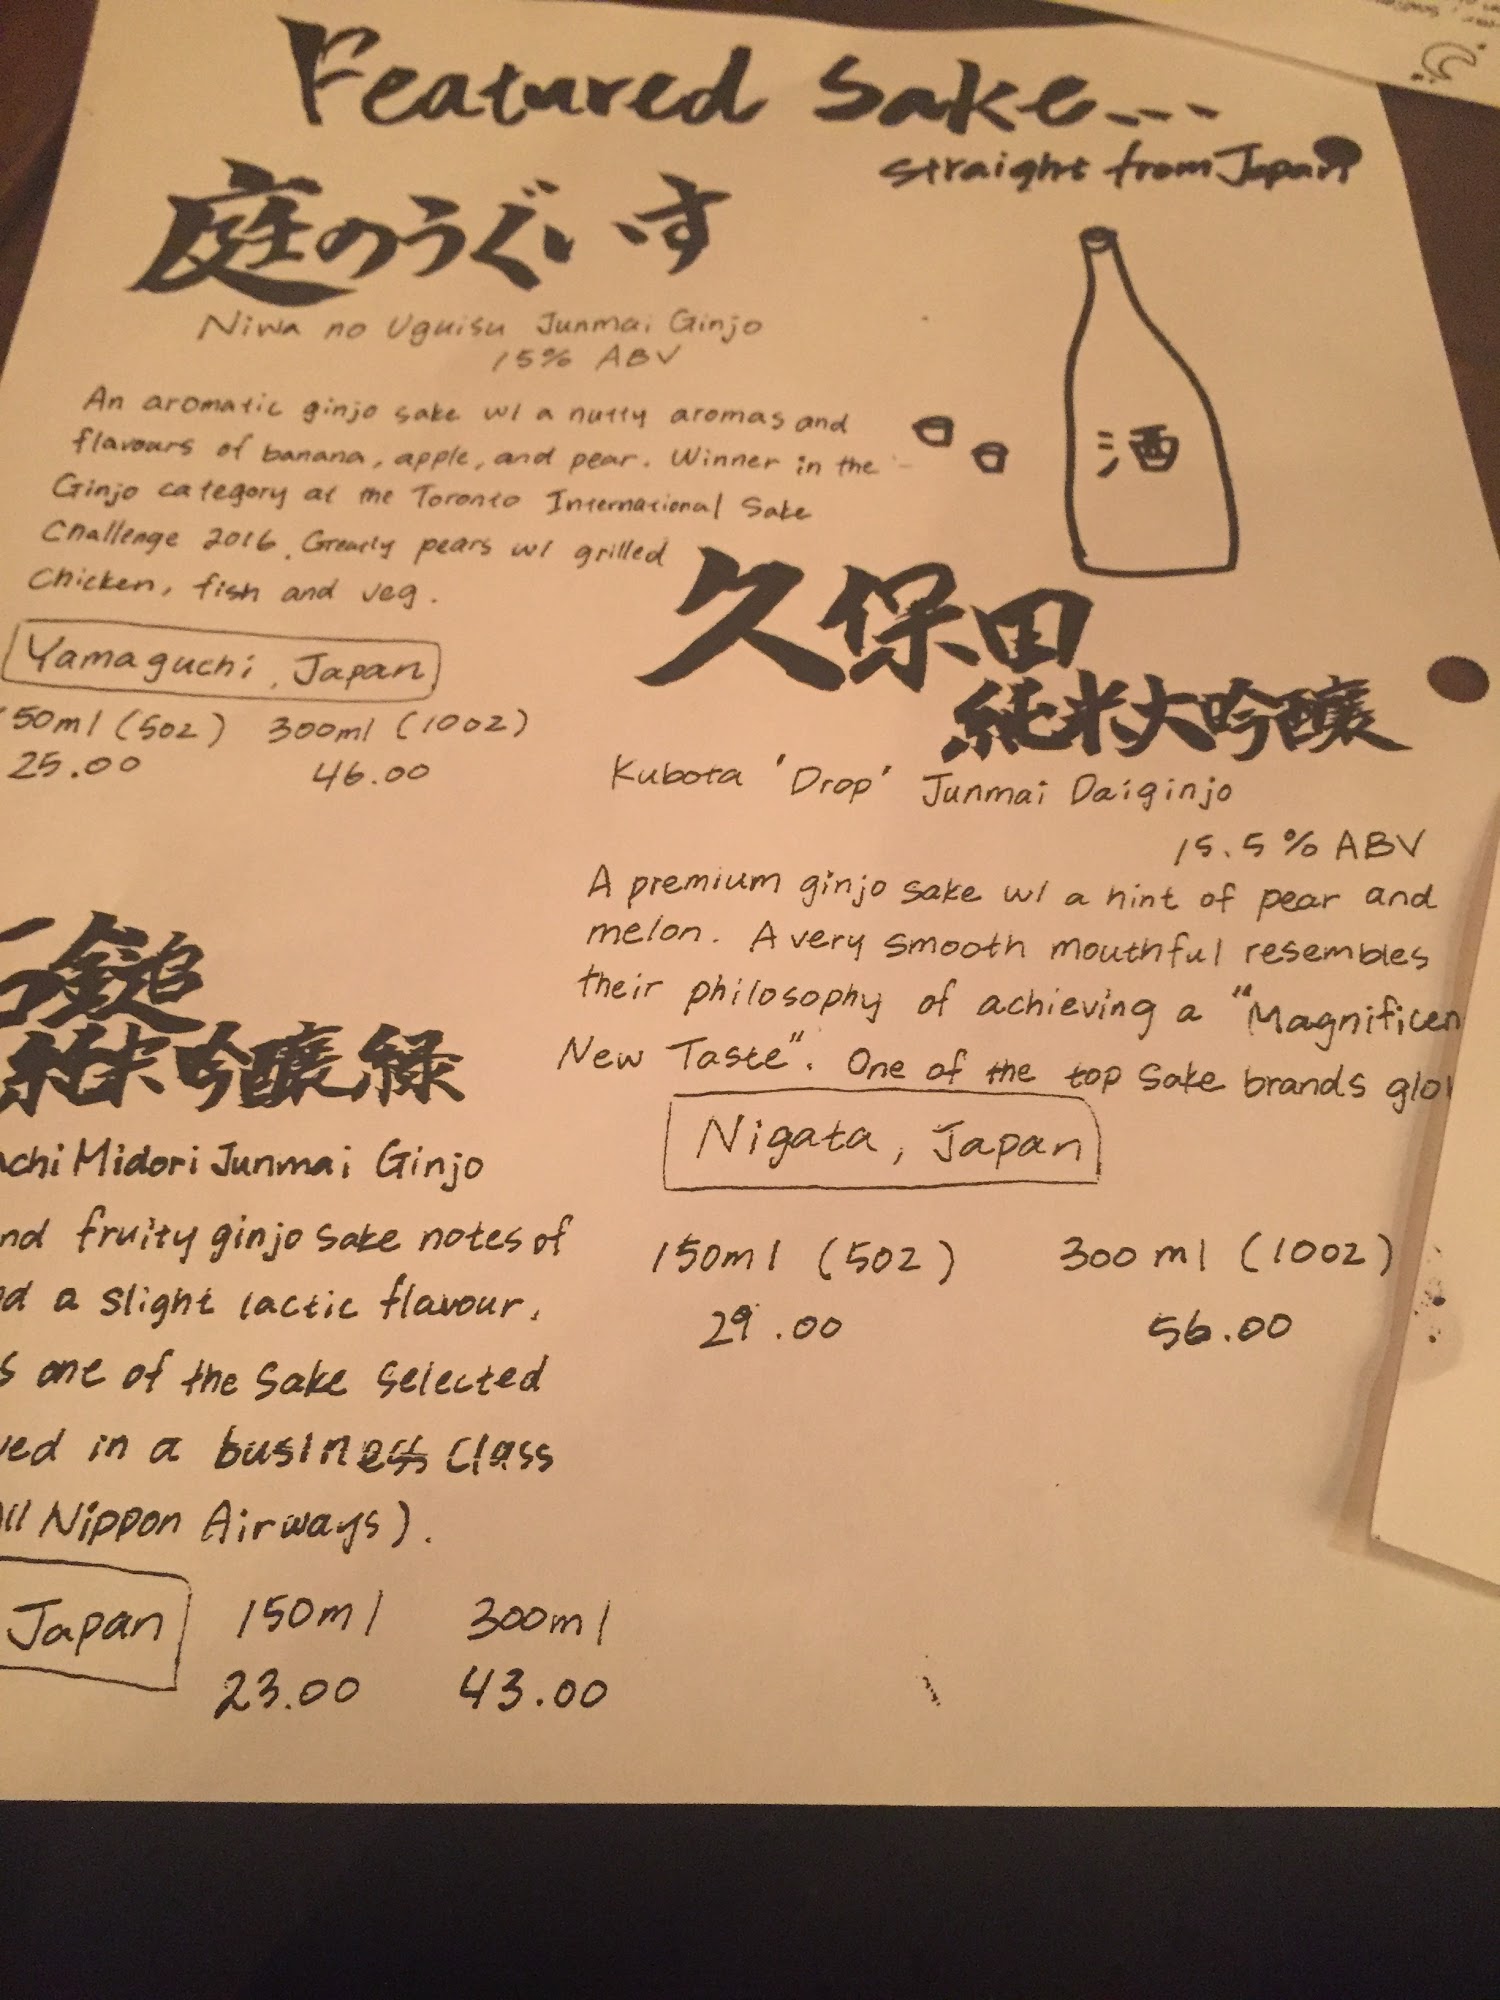 Featured Sake...
straight from Japan
庭のうぐいす
Niwa no Uguisu Junmai Ginjo
15% ABV
An aromatic ginjo sake w/ a nutty aromas and
flavours of banana, apple, and pear. Winner in the
Ginjo category at the Toronto International Sake
Challenge 2016. Greatly pears w/ grilled
chicken, fish and veg.
Yamaguchi, Japan
150ml (5oz) 300ml (10oz)
25.00 46.00
酒
久保田
純米大吟醸
Kubota 'Drop' Junmai Daiginjo
15.5% ABV
A premium ginjo sake w/ a hint of pear and
melon. A very smooth mouthful resembles
their philosophy of achieving a "Magnificen
New Taste". One of the top Sake brands glo
Nigata, Japan
150ml (5oz) 300ml (10oz)
29.00 56.00
石鎚
純米吟醸 緑
achi Midori Junmai Ginjo
nd fruity ginjo sake notes of
d a slight lactic flavour.
s one of the sake selected
ved in a business class
All Nippon Airways).
Japan 150ml 300ml
23.00 43.00